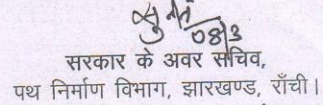 08/3
सरकार के अवर सचिव,
पथ निर्माण विभाग, झारखण्ड, राँची।